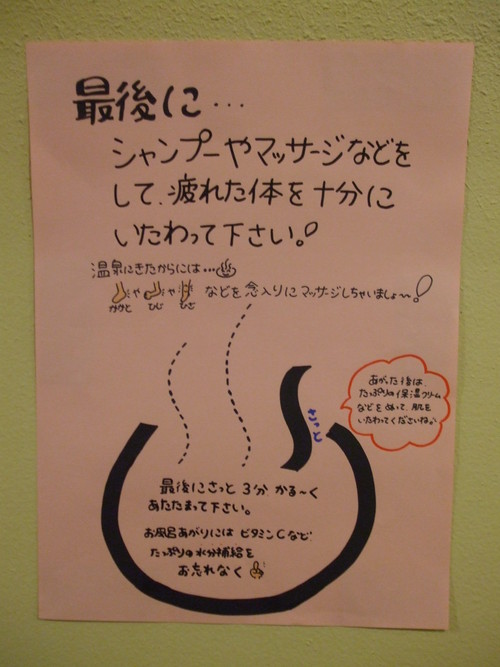 最後に…
シャンプーやマッサージなどを
して、疲れた体を十分に
いたわって下さい。
温泉にきたからには…♨
や や などを念入りにマッサージしちゃいましょ〜!
かかと ひじ ひざ
あがった後は、
たっぷりの保温クリーム
などをぬって、肌を
いたわってくださいね。
さっと
最後にさっと 3分 かる〜く
あたたまって下さい。
お風呂あがりには ビタミンCなど
たっぷりの水分補給を
お忘れなく